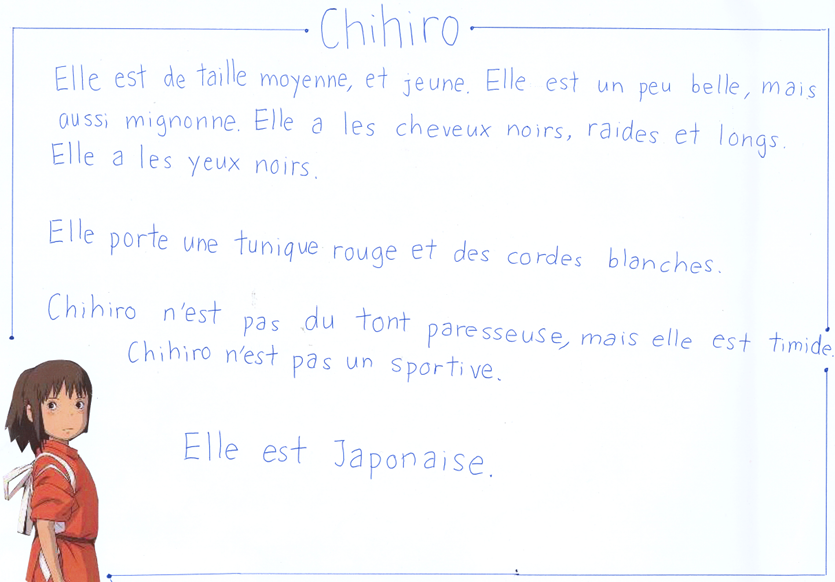 Chihiro
Elle est de taille moyenne, et jeune. Elle est un peu belle, mais
aussi mignonne. Elle a les cheveux noirs, raides et longs.
Elle a les yeux noirs.
Elle porte une tunique rouge et des cordes blanches.
Chihiro n'est pas du tont paresseuse, mais elle est timide.
Chihiro n'est pas un sportive.
Elle est Japonaise.